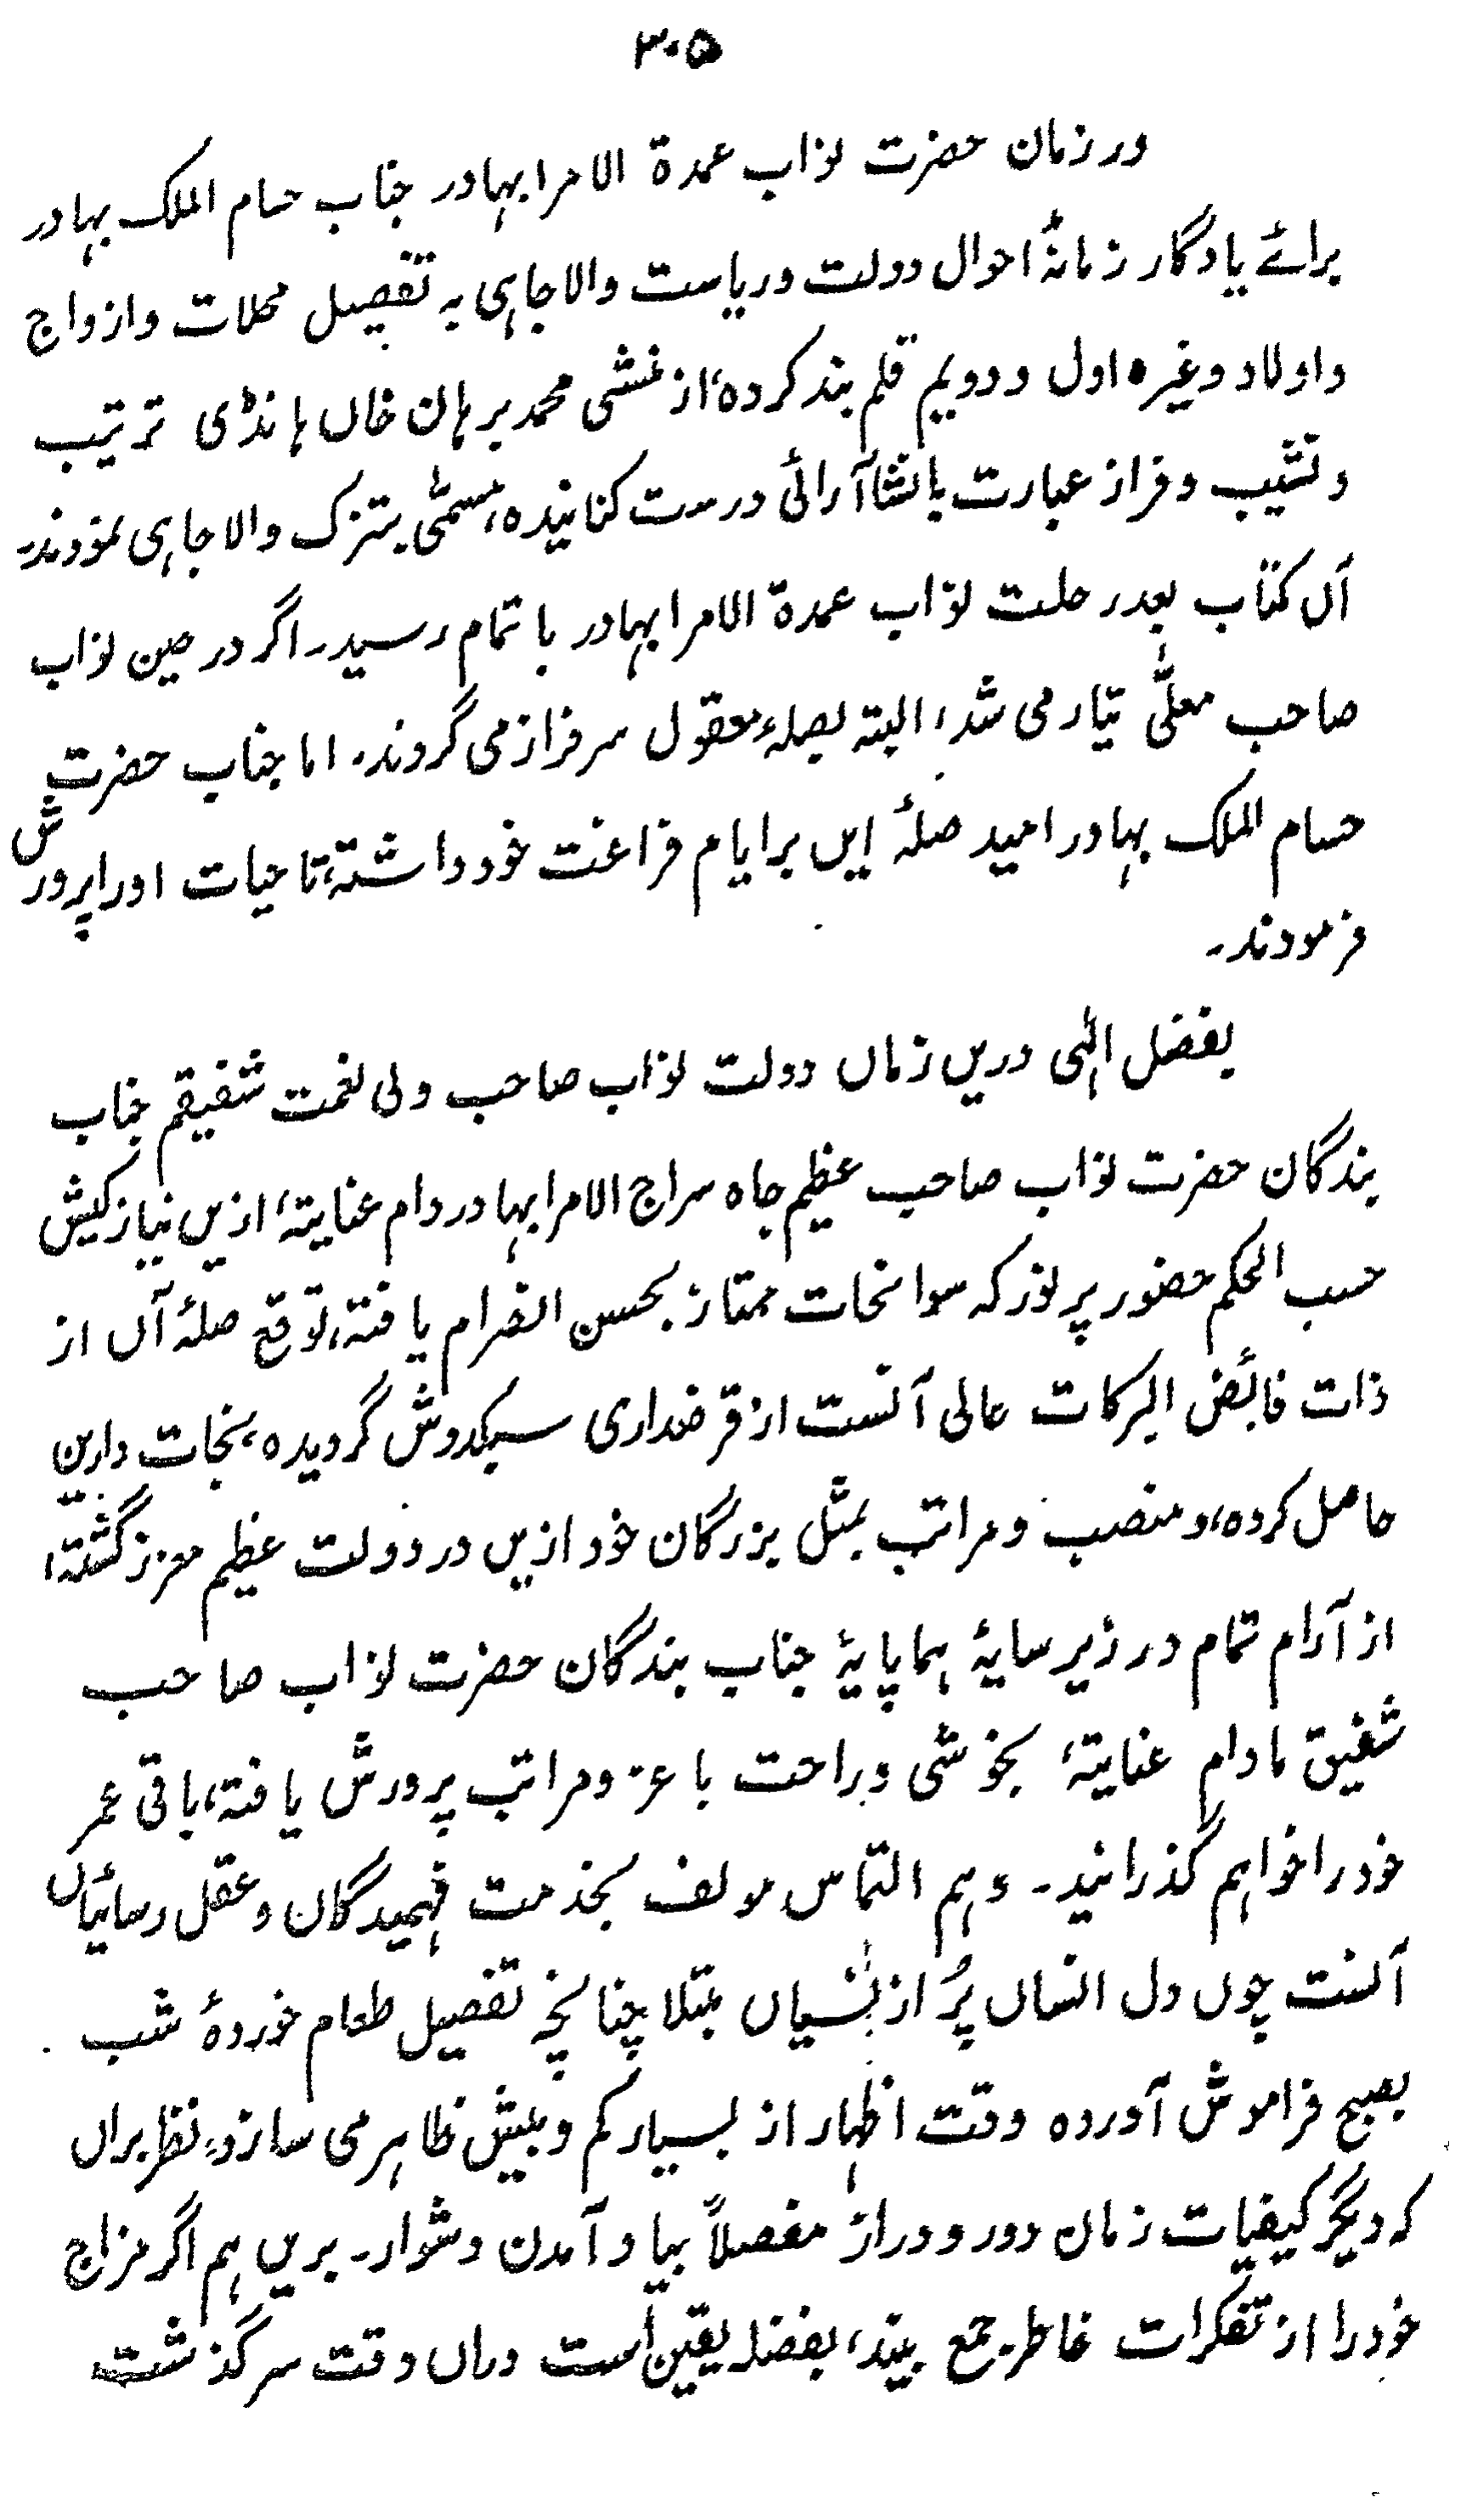 ۳۰۵
در زمان حضرت نواب عمدة الامرا بہادر جناب حسام الملک بہادر
برائے یادگار زمانۂ احوال دولت و ریاست والاجاہی بہ تفصیل محلات و ازواج
و اولاد وغیرہ اول و دویم قلم بند کردہ، از منشی محمد برہان خاں ہانڈی ترتیب
و نشیب و فراز عبارت بانشا آرائی درست کنانیدہ، مسمّٰی بتزک والاجاہی نمودند۔
آں کتاب بعد رحلت نواب عمدة الامرا بہادر باتمام رسید۔ اگر در حین نواب
صاحب معلّٰی تیار می شد، البتہ بصلہء معقول سرفراز می گروند۔ اما جناب حضرت
حسام الملک بہادر امید صلۂ ایں بر ایام فراغت خود داشتہ، تا حیات او را پرورش
فرمودند۔
بفضل الٰہی دریں زماں دولت نواب صاحب ولی نعمت شفیقم جناب
بندگان حضرت نواب صاحب عظیم جاہ سراج الامرا بہادر دام عنایتہٗ، ازیں نیاز کیش
حسب الحکم حضور پرنور کہ سوانحات ممتاز بحسن انصرام یافتہ، توقع صلۂ آں از
ذات فائض البرکات عالی آنست از قرضداری سبکدوش گردیدہ، نجات دارین
حاصل کردہ، و منصب و مراتب بمثل بزرگان خود ازیں در دولت عظیم معزز گشتہ،
از آرام تمام در زیر سایۂ ہما پایۂ جناب بندگان حضرت نواب صاحب
شفیق ما دام عنایتہٗ بخوشی و راحت با عز و مراتب پرورش یافتہ، باقی عمر
خود را خواہم گذرانید۔ وہم التماس مولف بخدمت فہمیدگان و عقل رسائیاں
آنست چوں دل انساں پُر از نسیاں مبتلا چنانچہ تفصیل طعام خوردۂ شب
بصبح فراموش آوردہ وقت اظہار از بسیار کم و بیش ظاہر می سازد، نظر براں
کہ دیگر کیفیات زمان دور و دراز مفصلاً بیاد آمدن دشوار۔ بریں ہم اگر مزاج
خود را از تفکرات خاطر جمع بیند، بفضلہ یقین است دراں وقت سرگذشت